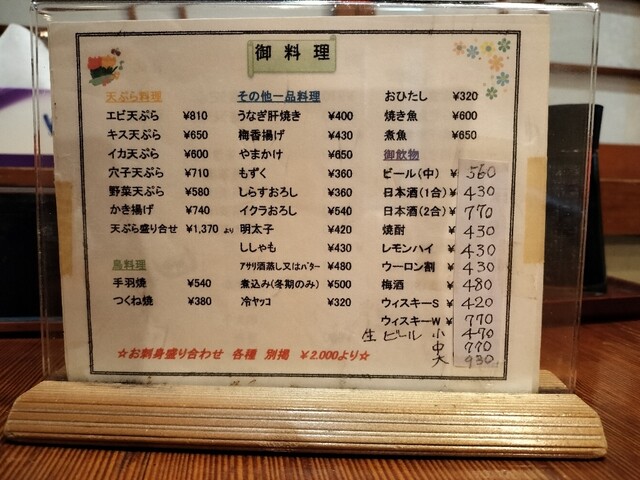 御料理
天ぷら料理
エビ天ぷら ¥810
キス天ぷら ¥650
イカ天ぷら ¥600
穴子天ぷら ¥710
野菜天ぷら ¥580
かき揚げ ¥740
天ぷら盛り合せ ¥1,370 より
鳥料理
手羽焼 ¥540
つくね焼 ¥380
その他一品料理
うなぎ肝焼き ¥400
梅香揚げ ¥430
やまかけ ¥650
もずく ¥360
しらすおろし ¥360
イクラおろし ¥540
明太子 ¥420
ししゃも ¥430
アサリ酒蒸し又はバター ¥480
煮込み(冬期のみ) ¥500
冷ヤッコ ¥320
おひたし ¥320
焼き魚 ¥600
煮魚 ¥650
御飲物
ビール(中) ¥ 560
日本酒(1合) ¥ 430
日本酒(2合) ¥ 770
焼酎 ¥ 430
レモンハイ ¥ 430
ウーロン割 ¥ 430
梅酒 ¥ 480
ウィスキーS ¥ 420
ウィスキーW ¥ 770
生ビール 小 470
中 770
大 930
☆お刺身盛り合わせ 各種 別掲 ¥2,000より☆